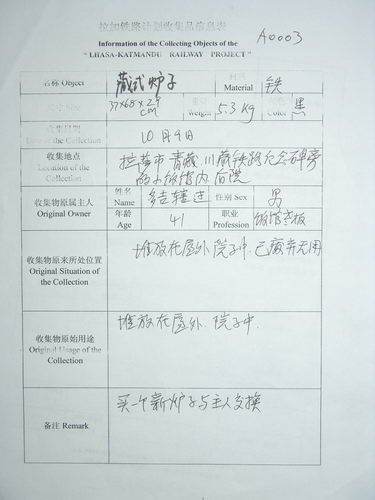 拉加铁路计划收集品信息表
Information of the Collecting Objects of the
" LHASA-KATMANDU RAILWAY PROJECT "
A0003
名称 Object 藏式炉子 材质 Material 铁
尺寸 Size 37x68x29 cm 重量 Weight 5.3 Kg 颜色 Color 黑
收集日期
Date of the Collection
10月9日
收集地点
Location of the
Collection
拉萨市青藏、川藏铁路纪念碑旁
的小饭馆内后院
收集物原属主人
Original Owner
姓名 Name 性别 Sex 男
年龄 Age 41 职业 Profession 饭馆老板
收集物原来所处位置
Original Situation of
the Collection
堆放在屋外院子中,已废弃无用
收集物原始用途
Original Usage of the
Collection
堆放在屋外、院子中.
备注 Remark
买一个新炉子与主人交换